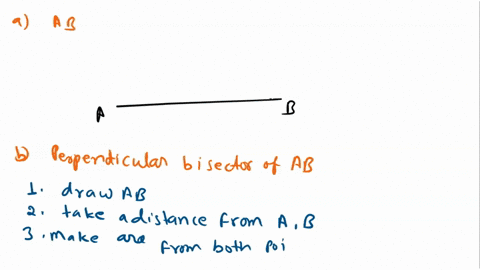 a) AB
A B
b) Perpendicular bisector of AB
1. draw AB
2. take a distance from A, B
3. make arc from both poi